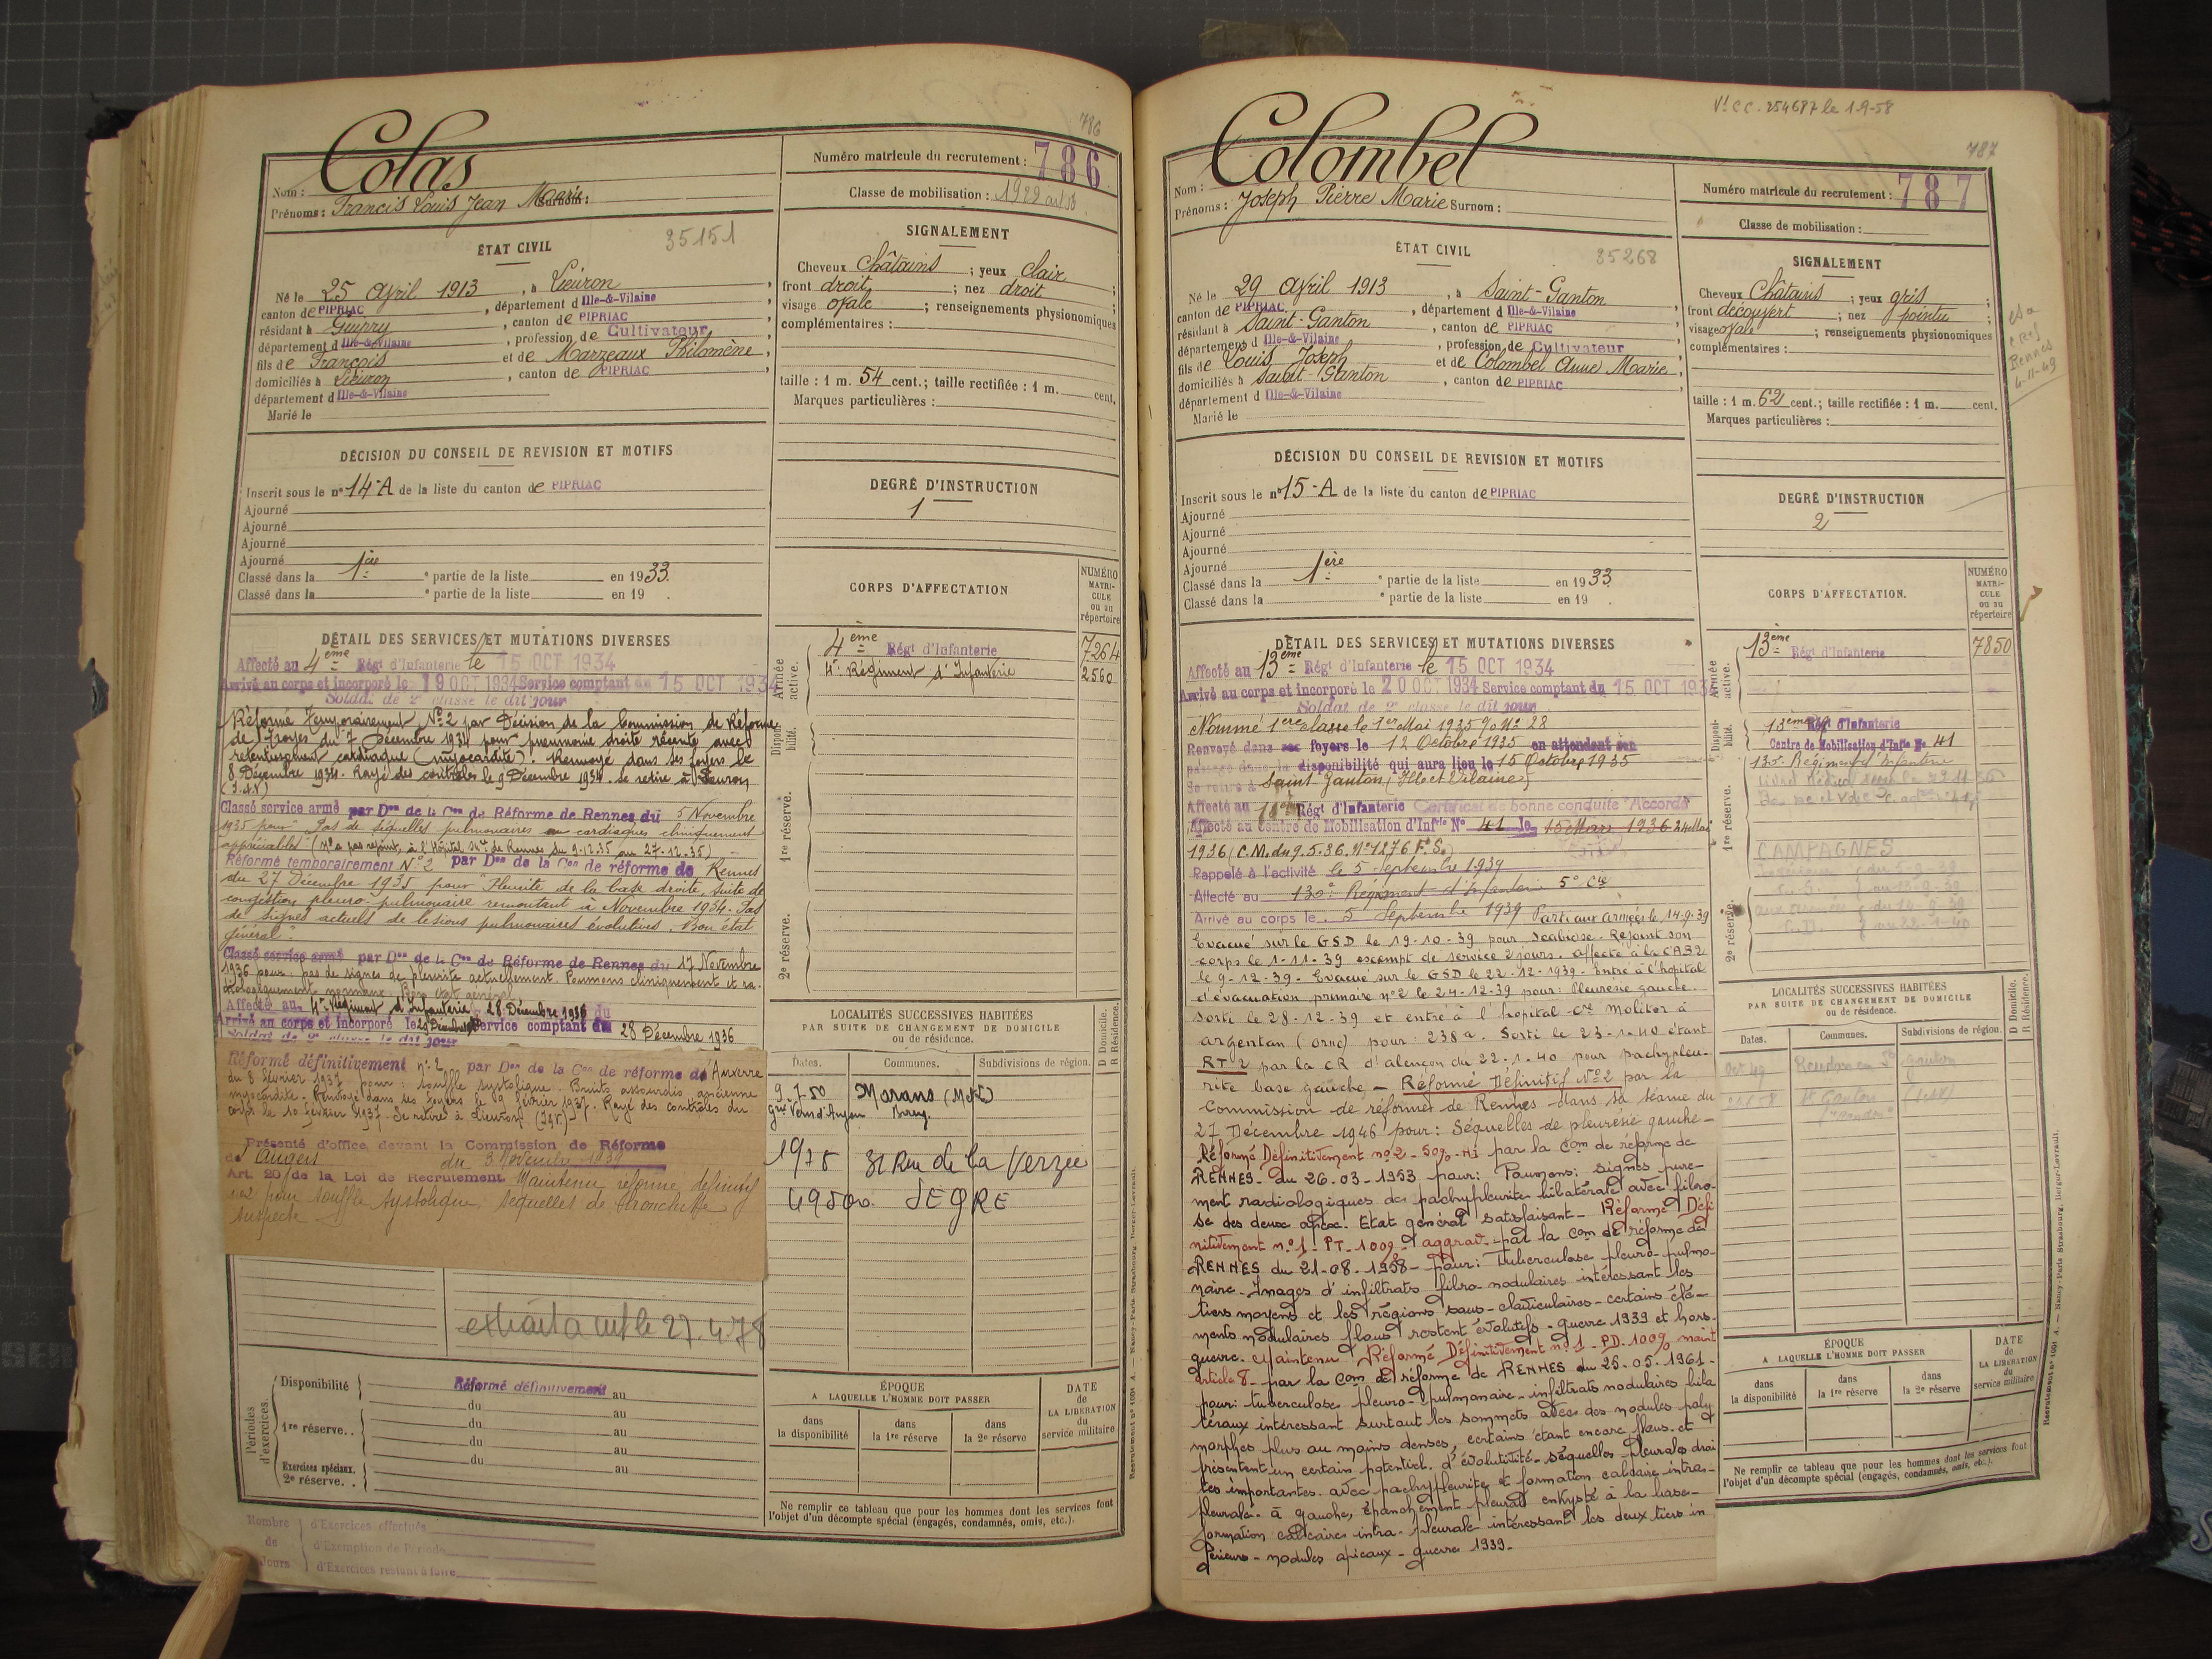 786
Colas
Nom :
Prénoms : Francis Louis Jean Marie
Numéro matricule du recrutement : 786
Classe de mobilisation :
ÉTAT CIVIL
35151
Né le 25 Avril 1913, à Lieuron
canton de PIPRIAC, département d Ille-&-Vilaine
résidant à Guipry, canton de PIPRIAC
département d Ille-&-Vilaine, profession de Cultivateur
fils de François et de Marzeaux Philomène,
domiciliés à Lieuron, canton de PIPRIAC
département d Ille-&-Vilaine
Marié le
SIGNALEMENT
Cheveux Châtains ; yeux clair
front droit ; nez droit ;
visage ovale ; renseignements physionomiques
complémentaires :
taille : 1 m. 54 cent.; taille rectifiée : 1 m. cent.
Marques particulières :
DÉCISION DU CONSEIL DE REVISION ET MOTIFS
Inscrit sous le n° 14-A de la liste du canton de PIPRIAC
Ajourné
Ajourné
Ajourné
Ajourné
Classé dans la 1ère partie de la liste en 1933.
Classé dans la partie de la liste en 19 .
DEGRÉ D'INSTRUCTION
1
DÉTAIL DES SERVICES ET MUTATIONS DIVERSES
Affecté au 4ème Régt d'Infanterie le 15 OCT 1934
Arrivé au corps et incorporé le 19 OCT 1934 Service comptant du 15 OCT 1934
Soldat de 2e classe le dit jour
Réformé Temporairement N°2 par Décision de la Commission de Réforme
de Troyes du 7 Décembre 1934 pour pneumonie droite récente avec
retentissement cardiaque (myocardite). Renvoyé dans ses foyers le
8 Décembre 1934. Rayé des contrôles le 9 Décembre 1934. Se retire à Lieuron
(I.&V)
Classé service armé par Don de la Con de Réforme de Rennes du 5 Novembre
1935 pour "Pas de séquelles pulmonaires ou cardiaques cliniquement
appréciables" (N'a pas rejoint, à l'Hôpital Mre de Rennes du 9.12.35 au 27-12-35)
Réformé temporairement N°2 par Don de la Con de réforme de Rennes
du 27 Décembre 1935 pour "Pleurite de la base droite, suite de
congestion pleuro-pulmonaire remontant à Novembre 1934. Pas
de signes actuels de lésions pulmonaires évolutives. Bon état
général".
Classé service armé par Don de la Con de Réforme de Rennes du 17 Novembre
1936 pour : pas de signes de pleurite actuellement. Poumons cliniquement et ra-
diologiquement normaux. Bon état général
Affecté au 4e Régiment d'Infanterie 28 Décembre 1936
Arrivé au corps et incorporé le Service comptant du 28 Décembre 1936
Soldat de 2e classe le dit jour
Réformé définitivement n°2 par Don de la Con de réforme de Auxerre
du 8 février 1937 pour : souffle systolique. Bruits assourdis ancienne
myocardite. Renvoyé dans ses foyers le 9 février 1937. Rayé des contrôles du
corps le 10 février 1937. Se retire à Lieuron (I&V).
Présenté d'office devant la Commission de Réforme
de Angers du 3 Novembre 1939
Art. 20 de la Loi de Recrutement Maintenu réforme définitif
n°2 pour souffle systolique séquelles de bronchite
suspecte
extrait a cult le 27.4.78
CORPS D'AFFECTATION
NUMÉRO MATRICULE ou au répertoire
Armée active.
4ème Régt d'Infanterie 7264
4e Régiment d'Infanterie 2560
Disponibilité.
1re réserve.
2e réserve.
LOCALITÉS SUCCESSIVES HABITÉES
PAR SUITE DE CHANGEMENT DE DOMICILE
ou de résidence.
D Domicile.
R Résidence.
Dates. Communes. Subdivisions de région.
9.7.50 Marans (M&L)
1978 32 Rue de la Verzée
49500 SEGRE
Périodes d'exercices.
Disponibilité Réformé définitivement au
1re réserve. . du au
du au
du au
du au
Exercices spéciaux.
2e réserve. . du au
ÉPOQUE
A LAQUELLE L'HOMME DOIT PASSER
dans la disponibilité
dans la 1re réserve
dans la 2e réserve
DATE de LA LIBÉRATION du service militaire
Ne remplir ce tableau que pour les hommes dont les services font
l'objet d'un décompte spécial (engagés, condamnés, omis, etc.).
Nombre de Jours
d'Exercices effectués
d'Exemption de Période
d'Exercices restant à faire
Recrutement n° 1001 A. — Nancy-Paris-Strasbourg, Berger-Levrault.
Vt CC. 254687 le 1-9-58
787
Colombel
Nom :
Prénoms : Joseph Pierre Marie Surnom :
Numéro matricule du recrutement : 787
Classe de mobilisation :
ÉTAT CIVIL
35268
Né le 29 Avril 1913, à Saint-Ganton
canton de PIPRIAC, département d Ille-&-Vilaine
résidant à Saint-Ganton, canton de PIPRIAC
département d Ille-&-Vilaine, profession de Cultivateur
fils de Louis Joseph et de Colombel Anne Marie,
domiciliés à Saint-Ganton, canton de PIPRIAC
département d Ille-&-Vilaine
Marié le
SIGNALEMENT
Cheveux Châtains ; yeux gris ;
front découvert ; nez pointu ;
visage ovale ; renseignements physionomiques
complémentaires :
taille : 1 m. 62 cent.; taille rectifiée : 1 m. cent.
Marques particulières :
Rennes
DÉCISION DU CONSEIL DE REVISION ET MOTIFS
Inscrit sous le n° 15-A de la liste du canton de PIPRIAC
Ajourné
Ajourné
Ajourné
Ajourné
Classé dans la 1ère partie de la liste en 1933
Classé dans la partie de la liste en 19 .
DEGRÉ D'INSTRUCTION
2
DÉTAIL DES SERVICES ET MUTATIONS DIVERSES
Affecté au 13ème Régt d'Infanterie le 15 OCT 1934
Arrivé au corps et incorporé le 20 OCT 1934 Service comptant du 15 OCT 1934
Soldat de 2e classe le dit jour
Nommé 1ère classe le 1er Mai 1935 N° 28
Renvoyé dans ses foyers le 12 Octobre 1935 en attendant son
passage dans la disponibilité qui aura lieu le 15 Octobre 1935
Se retire à Saint Ganton (Ille et Vilaine)
Affecté au Régt d'Infanterie Certificat de bonne conduite "Accordé"
Affecté au Centre de Mobilisation d'Infrie N° 41 le 15 Mars 1936 24 Mai
1936 (C.M. du 9.5.36. N° 1276 F.S.)
Rappelé à l'activité le 5 Septembre 1939
Affecté au 130e Régiment d'Infanterie 5e Cie
Arrivé au corps le 5 Septembre 1939 Parti aux armées le 14-9-39
Evacué sur le GSD le 19-10-39 pour scabiose. Rejoint son
corps le 1-11-39 exempt de service 2 jours. Affecté à la CAB2
le 9-12-39. Evacué sur le GSD le 22-12-1939. Entré à l'hôpital
d'évacuation primaire n°2 le 24-12-39 pour : Pleurésie gauche.
Sorti le 28-12-39 et entré à l'hôpital cre Molitor à
argentan (orne) pour : 238 a. Sorti le 23-1-40 étant
RT 2 par la CR d'alençon du 22-1-40 pour pachypleu-
rite base gauche — Réformé Définitif N°2 par la
Commission de réforme de Rennes dans sa séance du
27 Décembre 1946 pour : Séquelles de pleurésie gauche —
Réformé Définitivement n°2 - 50% - Hi par la Com de réforme de
RENNES du 26-03-1953 pour : Poumons : signes pure-
ment radiologiques de pachypleurite bilatérale avec fibro-
se des deux apex. Etat général satisfaisant — Réformé Défi
nitivement n°1 - PT - 100% - aggrav. par la Com de réforme de
RENNES du 21-08-1958 — pour : Tuberculose pleuro-pulmo-
naire - Images d'infiltrats fibro-nodulaires intéressant les
tiers moyens et les régions sous-claviculaires - certains élé-
ments nodulaires flous restent évolutifs - guerre 1939 et hors-
guerre. Maintenu Réformé Définitivement n°1 - PD. 100% maint
article 8 - par la Com de réforme de RENNES du 25-05-1961 -
pour : tuberculose pleuro-pulmonaire - infiltrats nodulaires bila
téraux intéressant surtout les sommets avec des nodules poly
morphes plus ou moins denses, certains étant encore flous et
présentent un certain potentiel d'évolutivité - séquelles pleurales droi
tes importantes avec pachypleurite & formation calcaire intra-
pleurale - à gauche, épanchement pleural enkysté à la base -
formation calcaires intra-pleurale intéressant les deux tiers in
férieurs - nodules apicaux - guerre 1939 -
CORPS D'AFFECTATION.
NUMÉRO MATRICULE ou au répertoire
Armée active.
13ème Régt d'Infanterie 7850
Disponibilité.
13ème Régt d'Infanterie
Centre de Mobilisation d'Infie N° 41
130e Régiment d'Infanterie
1re réserve.
CAMPAGNES
2e réserve.
LOCALITÉS SUCCESSIVES HABITÉES
PAR SUITE DE CHANGEMENT DE DOMICILE
ou de résidence.
D Domicile.
R Résidence.
Dates. Communes. Subdivisions de région.
St Ganton
ÉPOQUE
A LAQUELLE L'HOMME DOIT PASSER
dans la disponibilité
dans la 1re réserve
dans la 2e réserve
DATE de LA LIBÉRATION du service militaire
Ne remplir ce tableau que pour les hommes dont les services font
l'objet d'un décompte spécial (engagés, condamnés, omis, etc.).
Recrutement n° 1001 A. — Nancy-Paris-Strasbourg, Berger-Levrault.